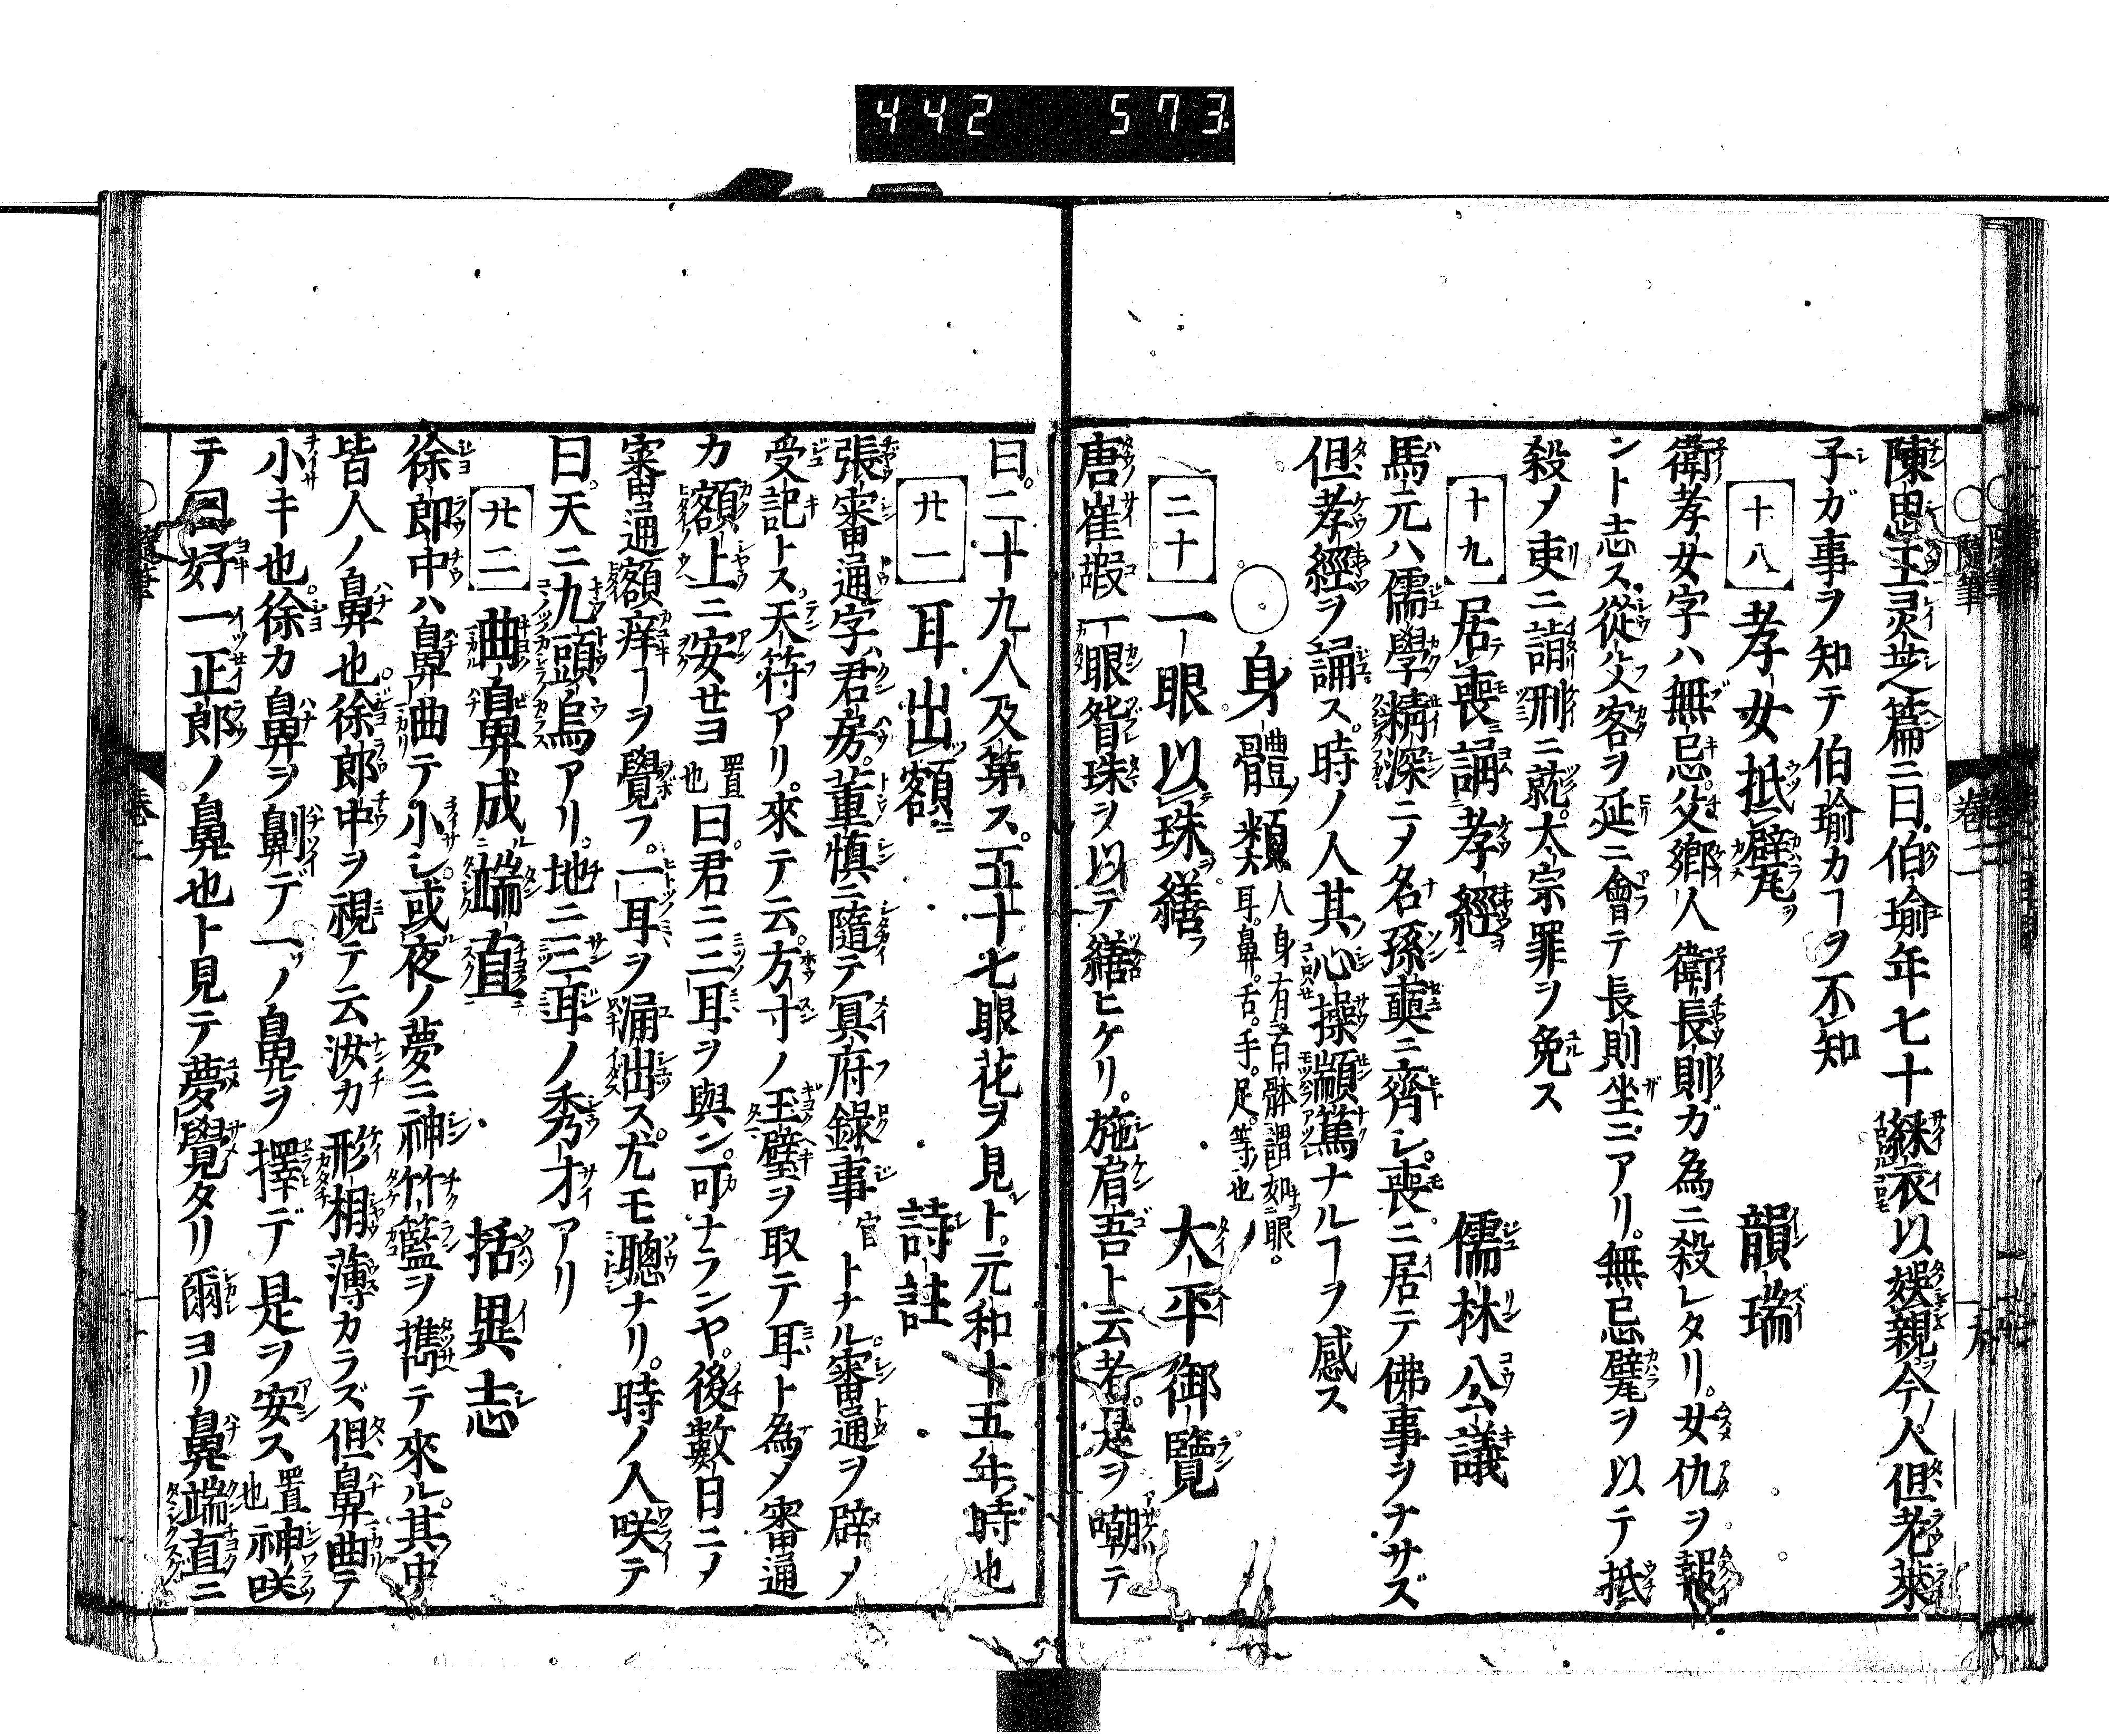 442 573
陳思王灵芝篇ニ曰伯瑜年七十綵衣以娯親今ノ人但老萊
子ガ事ヲ知テ伯瑜カヿヲ不知
十八 孝女抵甓 韻瑞
衛孝女字ハ無忌父郷人衛長則ガ為ニ殺レタリ。女仇ヲ報
ント志ス從父客ヲ延ニ會テ長則坐ニアリ。無忌甓ヲ以テ抵
殺メ吏ニ詣刑ニ就太宗罪ヲ免ス
十九 居喪誦孝經 儒林公議
馬元ハ儒學精深ニメ名孫奭ニ齊シ。喪ニ居テ佛事ヲナサズ
但孝經ヲ誦ス。時ノ人其心操顓篤ナルヿヲ感ス
○身體類 人身有百骸謂如眼。耳。鼻。舌。手。足。等ノ也
二十 一眼以珠繕フ 大平御覽
唐崔嘏一眼眢珠ヲ以テ繕ヒケリ。施肩吾ト云者是ヲ嘲テ
曰。二十九人及第ス。五十七眼花ヲ見ト。元和十五年ノ時也
廿一 耳出額ニ 詩註
張審通字ハ君房。董慎ニ隨テ冥府録事官トナル審通ヲ辟メ
受記トス。天符アリ。來テ云。方寸ノ玉璧ヲ取テ耳ト為メ審通
カ額上ニ安セヨ置也曰。君ニ三耳ヲ與ン。可ナランヤ。後數日ニメ
審通額痒ヿヲ覺フ。一耳ヲ漏出ス。尤モ聰ナリ。時ノ人咲テ
曰。天ニ九頭鳥アリ。地ニ三耳ノ秀才アリ
廿二 曲鼻成端直 括異志
徐郎中ハ鼻曲テ小シ。或夜ノ夢ニ神竹籃ヲ携テ來ル。其中
皆人ノ鼻也。徐郎中ヲ視テ云汝カ形相薄カラズ但鼻曲テ
小キ也。徐カ鼻ヲ劓デ一ツノ鼻ヲ擇デ是ヲ安ス置也神咲
テ曰好一正郎ノ鼻也ト見テ夢覺タリ爾ヨリ鼻端直ニ